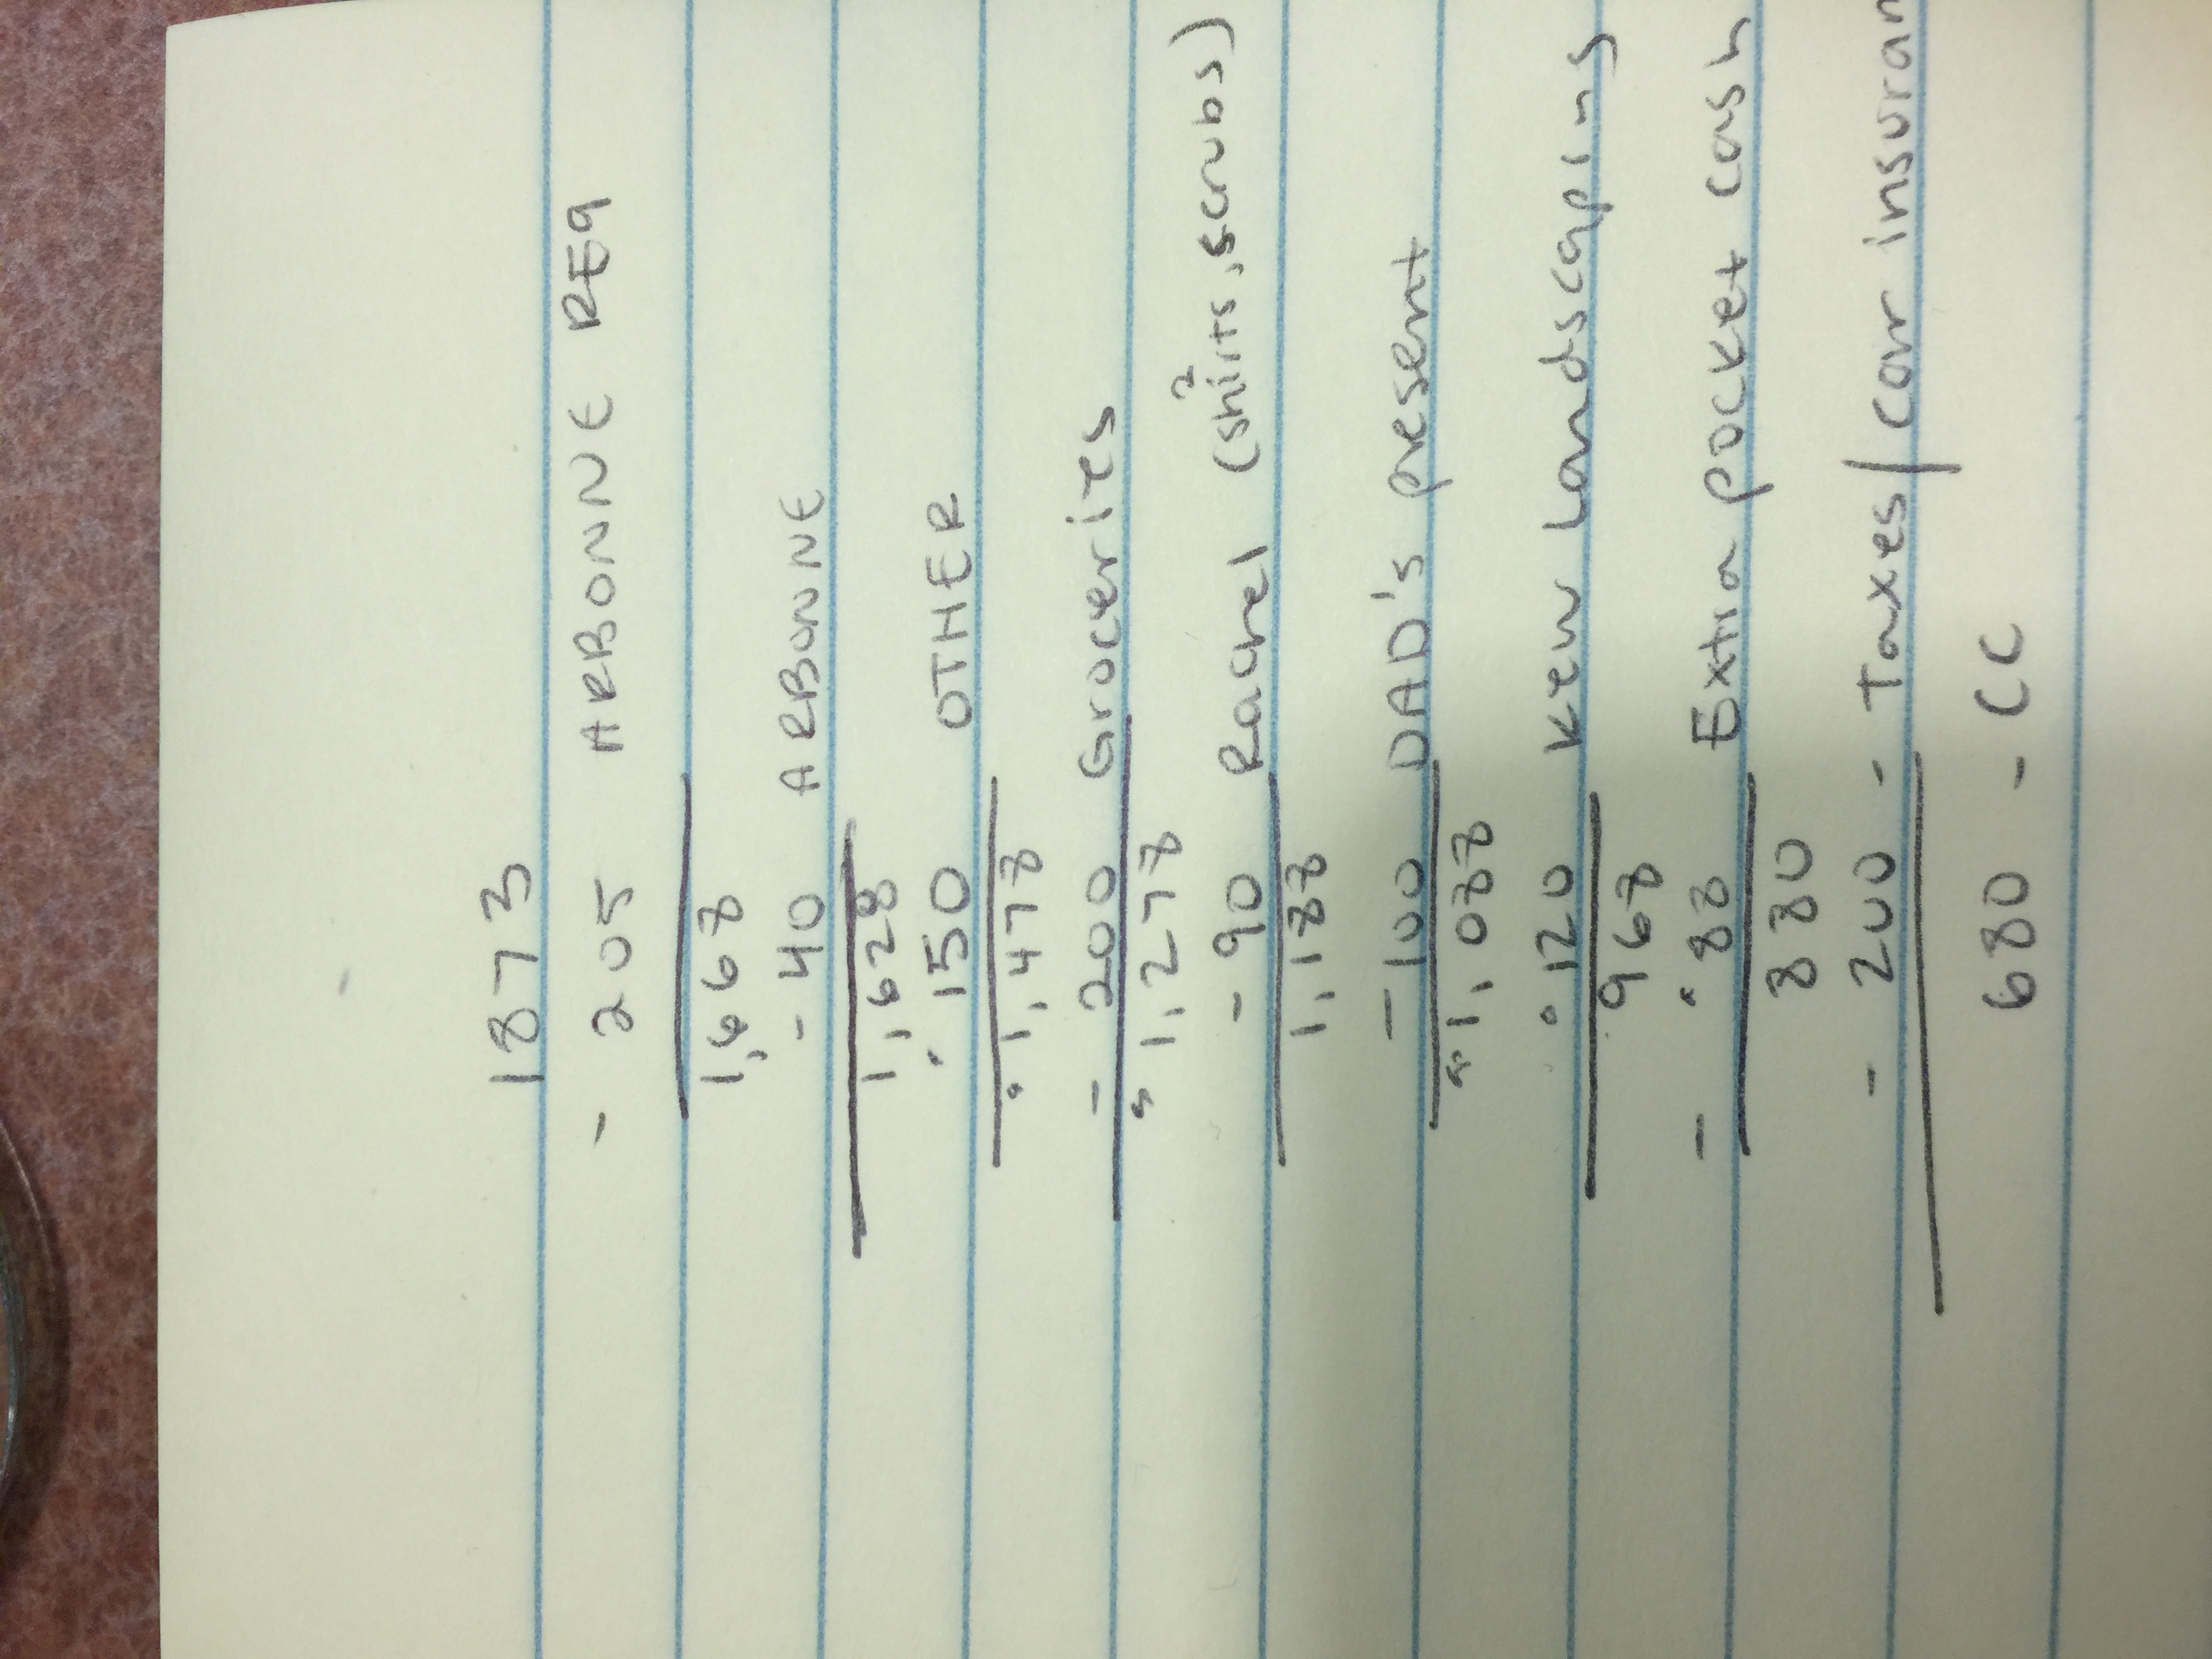 1873
- 205 ARBONNE REG
1,668
- 40 ARBONNE
1,628
· 150 OTHER
· 1,478
- 200 Groceries
1,278
- 90 Rachel (shirts, scrubs)
2
1,188
- 100 DAD's present
1,088
· 120 Kew Landscaping
968
- · 88 Extra pocket cash
880
- 200 - Taxes/car insuran
680 - CC